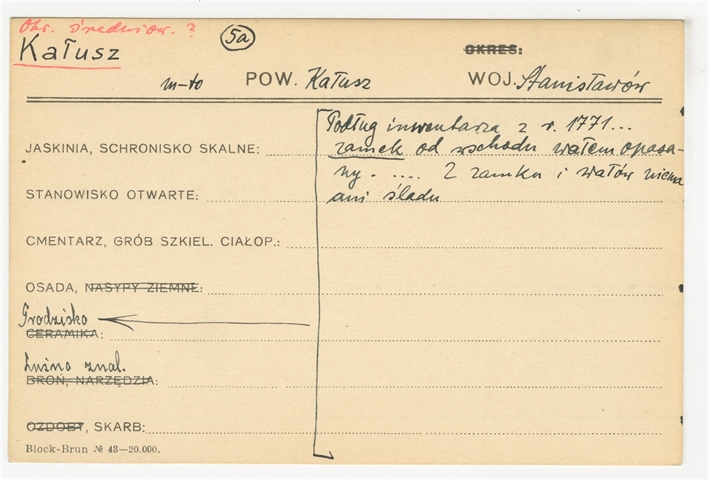 Okr. średniow. ?
Kałusz
5a
OKRES:
m-to POW. Kałusz WOJ. Stanisławów
Podług inwentarza z r. 1771...
JASKINIA, SCHRONISKO SKALNE: zamek od wschodu wałem opasa-
ny. .... Z zamku i wałów niema
STANOWISKO OTWARTE: ani śladu
CMENTARZ, GRÓB SZKIEL. CIAŁOP.:
OSADA, NASYPY ZIEMNE:
Grodzisko
CERAMIKA:
Luźno znal.
BROŃ, NARZĘDZIA:
OZDOBY, SKARB:
Block-Brun № 43—20.000.